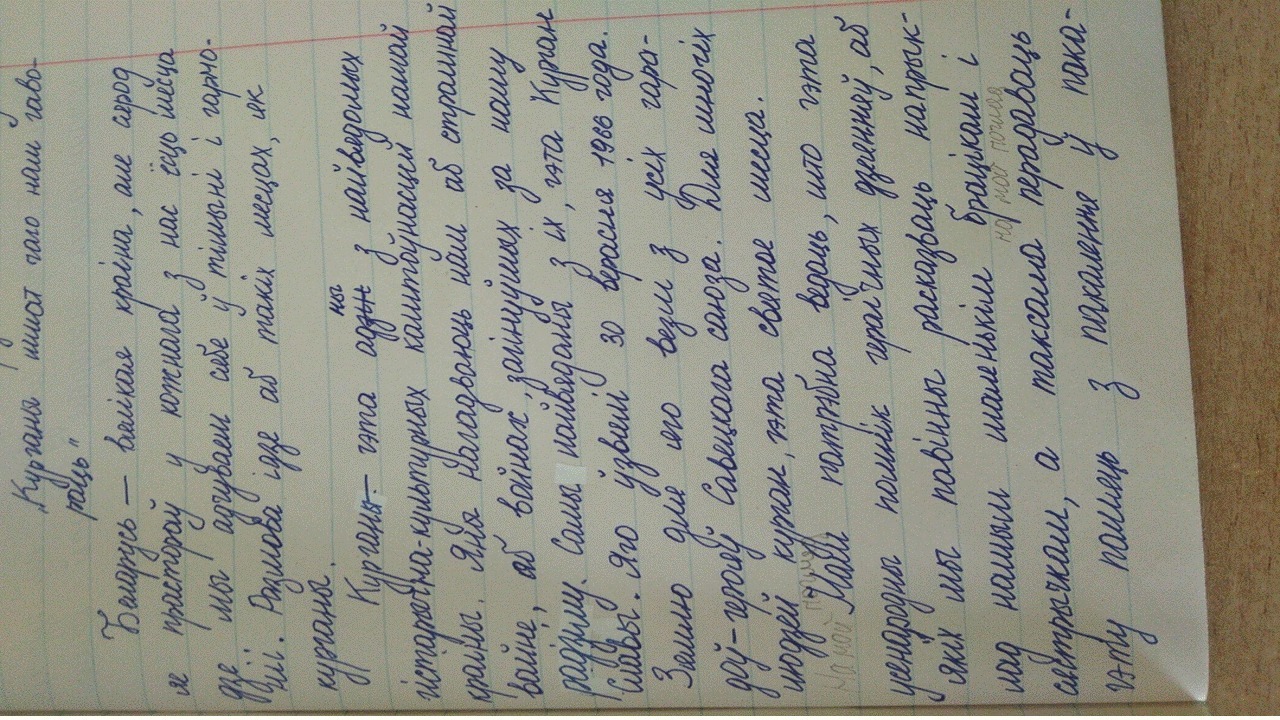 „Кургана шмат чаго нам гаво-
раць"
Беларусь — вялікая краіна, але сярод
яе прастораў у кожнага з нас ёсць месца
дзе мы адчуваем сябе ў цішыні і гармо-
ніі. Размова ідзе аб такіх месцах, як
курганы.
Курганы — гэта адны з найвядомых
гісторыка-культурных каштоўнасцей нашай
краіны. Яны нагадваюць нам аб страшнай
вайне, аб воінах, загінуўшых за нашу
радзіму. Самы найвядомы з іх, гэта Курган
Славы. Яго ўзвялі 30 верасня 1966 года.
Зямлю для яго везлі з усіх гара-
доў-герояў Савецкага саюза. Для многіх
людзей курган, гэта святое месца.
На мой погляд
Маві патрэбна ведаць, што гэта
усенародны помнік гераічных дзеянняў, аб
якіх мы павінны расказваць напрык-
лад нашым маленькім брацікам і
на мой погляд
сястрычкам, а таксама перадаваць
гэту памяць з пакалення ў пака-